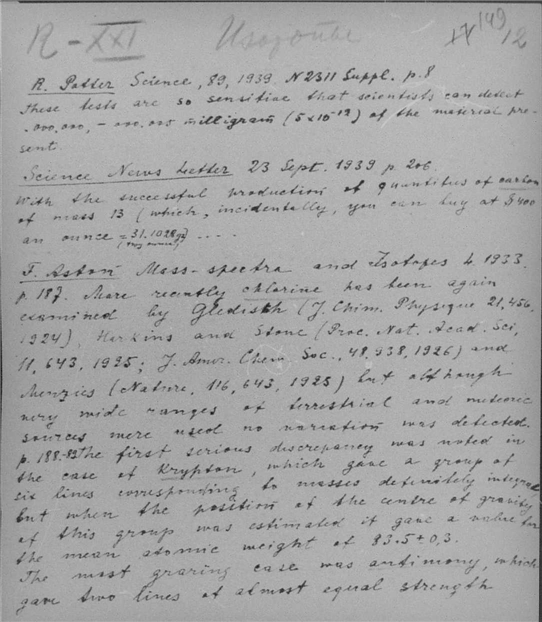 R-XXI Изотопы 149 12
R. Potter Science, 89, 1939. N2311 Suppl. p. 8
These tests are so sensitive that scientists can detect
.000,000,-000.005 milligram (5x10⁻¹²) of the material pre-
sent.
Science News Letter 23 Sept. 1939 p. 206.
With the successful production of quantities of carbon
of mass 13 (which, incidentally, you can buy at $400
an ounce = 31.1028 gr) ....
F. Aston Mass-spectra and Isotopes L 1933.
p. 187. More recently chlorine has been again
examined by Gledisch (J. Chim. Physique 21, 456,
1924), Harkins and Stone (Proc. Nat. Acad. Sci,
11, 643, 1925; J. Amer. Chem. Soc., 48, 938, 1926) and
Menzies (Nature, 116, 643, 1925) but although
very wide ranges of terrestrial and meteoric
sources were used no variation was detected.
p. 188-89 The first serious discrepancy was noted in
the case of Krypton, which gave a group of
six lines corresponding to masses definitely integral
but when the position of the centre of gravity
of this group was estimated it gave a value for
the mean atomic weight of 83.5±0,3.
The most graring case was antimony, which
gave two lines of almost equal strength